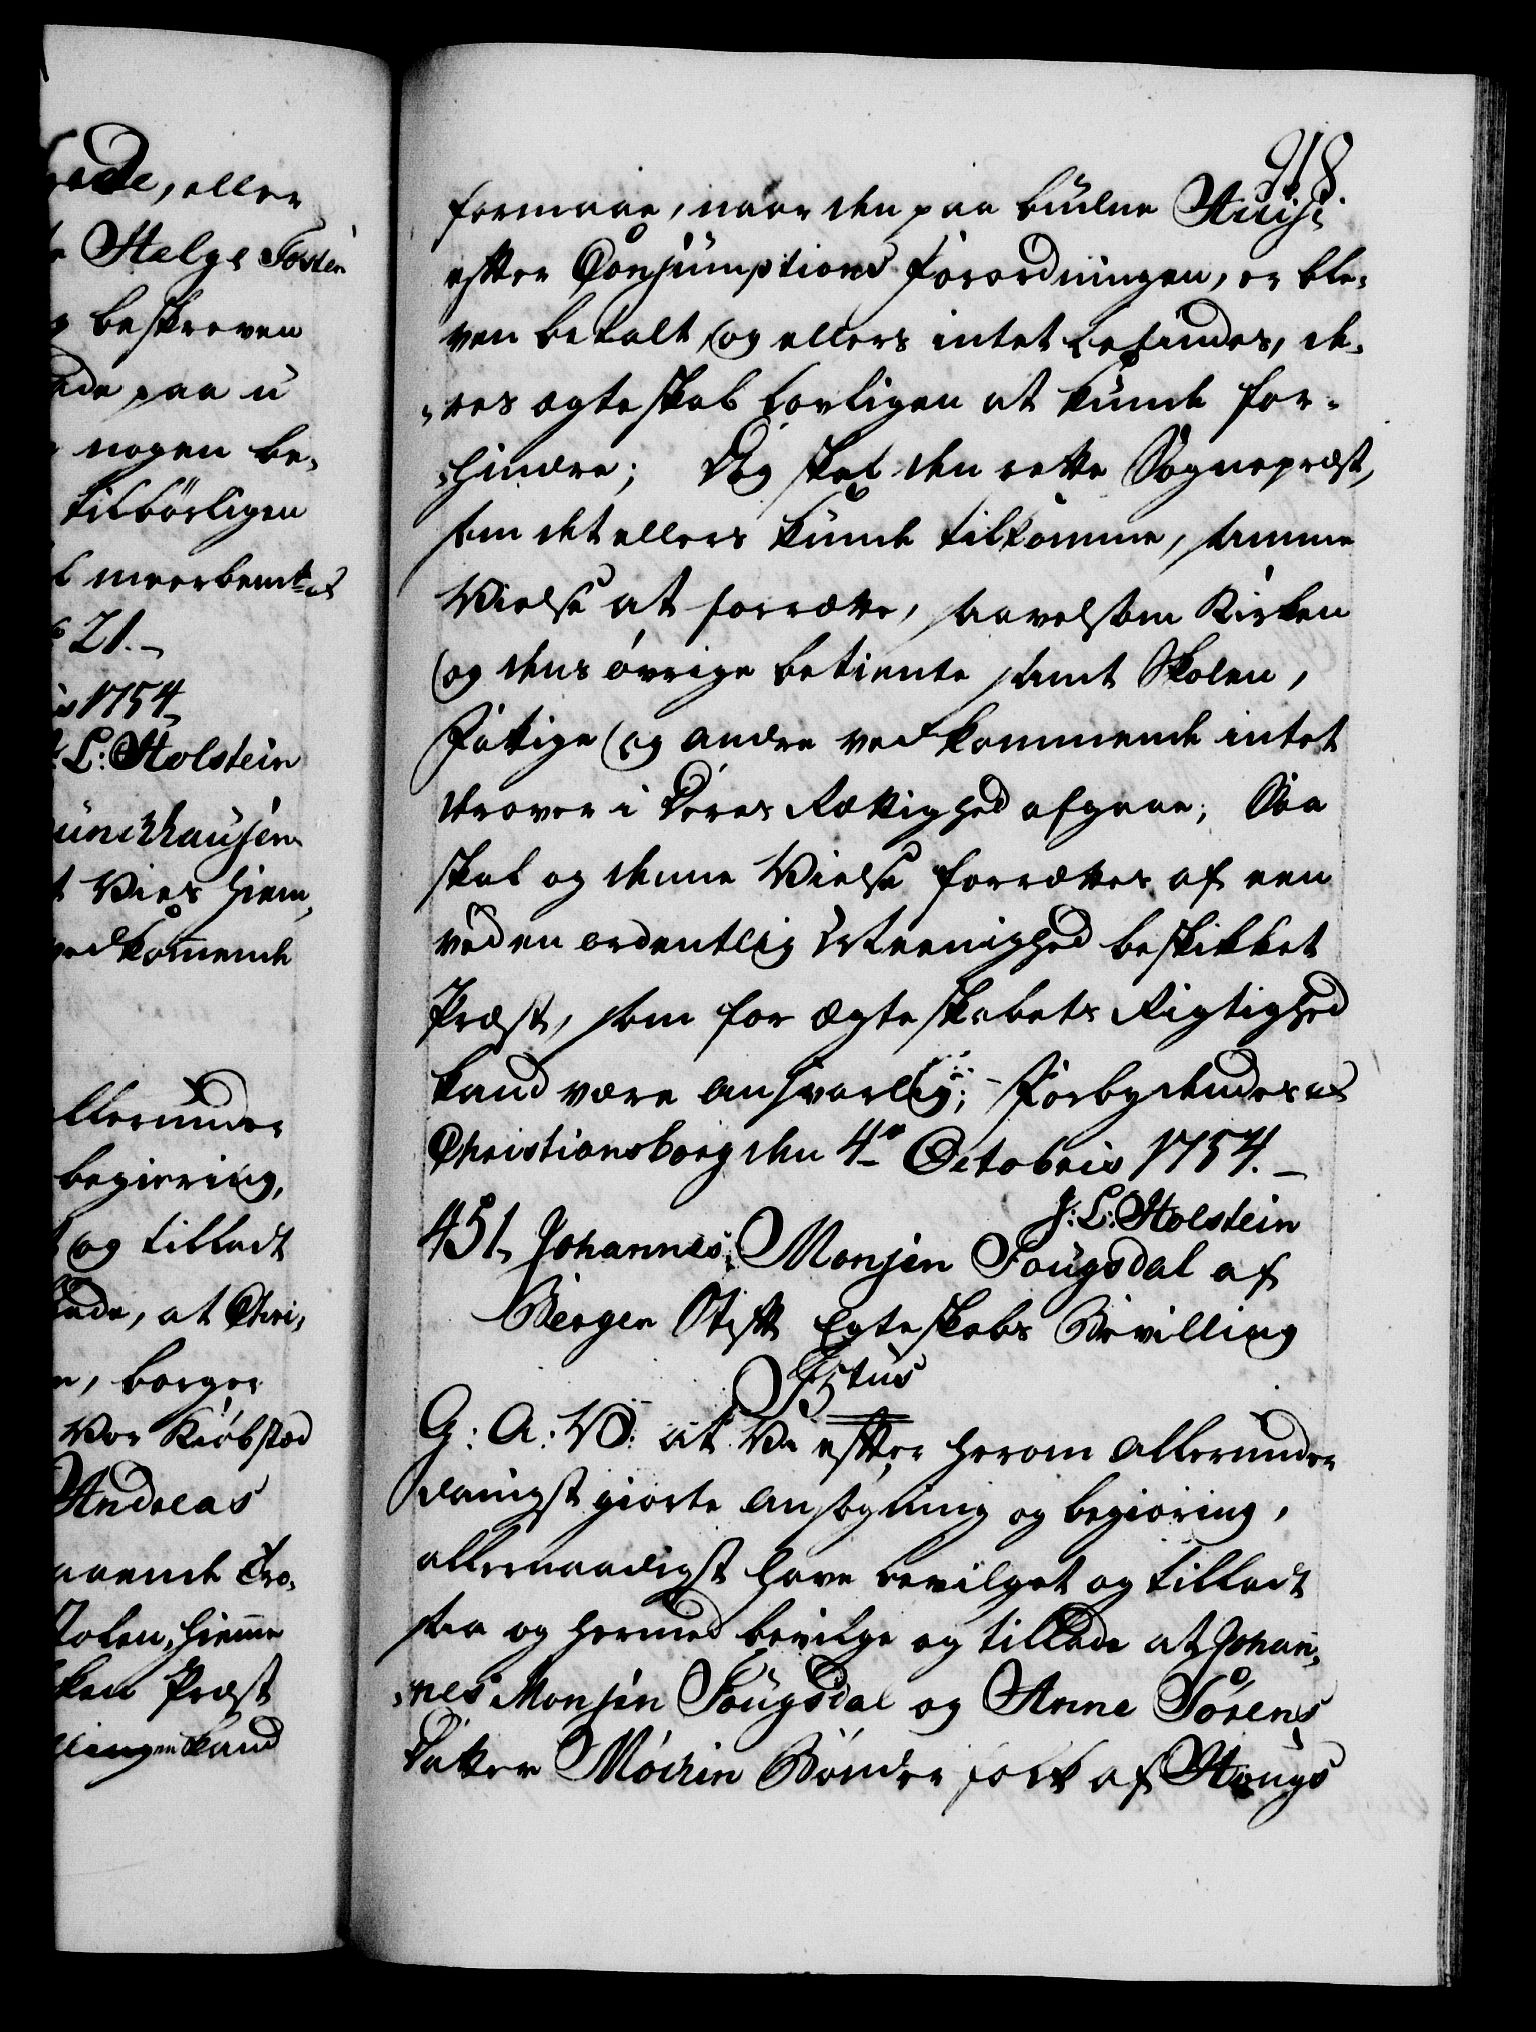 ede, eller
Helge Tosten
beskreven
ade paa u
nogen be,
tilbörligen
meerbemte
21.
1754
L: Holstein
ünchhausen
Vies hiem,
vedkommende
llerunder
begiering,
og tilladt
lade, at Chri,
borger
Vor Kiöbstæd
Andreas
aaende Tro,
Stolen, hiemme
ken Præst
lingen kand
918
formaae, naar den paa budne
efter Consumptions Forordningen, er ble,
ven betalt og ellers intet befindes, de,
,res ægteskab lovligen at kunde for,
,hindre; Dog skal den rette Sognepræst,
som det ellers kunde tilkomme, samme
Vielse at forrette, saavelsom Kirken
og dens övrige betiente samt Skolen,
Fattige og andre vedkommende intet
derover i deres Rettighed afgaae; Saa
skal og denne Vielse forrettes af een
ved en ordentlig Meenighed beskikket
Præst, som for Ægteskabets Rigtighed
kand være ansvarlig; Forbydendes
Christiansborg den 4de Octobris 1754.
J: L: Holstein
451, Johannes Monsen Fougsdal af
Bergen Stift Egteskabs Bevilling
F5tus
G: A: V: at Vi efter herom allerunder
danigst giorte ansøgning og begiering,
allernaadigst have bevilget og tilladt
saa og hermed bevilge og tillade at Johan,
,nes Monsen Fougsdal og Anne Sörens
Datter Möchin Bönder folk af Hougs